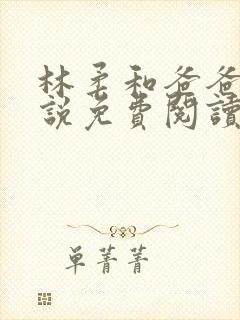 林柔和爸爸
說免費閱讀
单菁菁